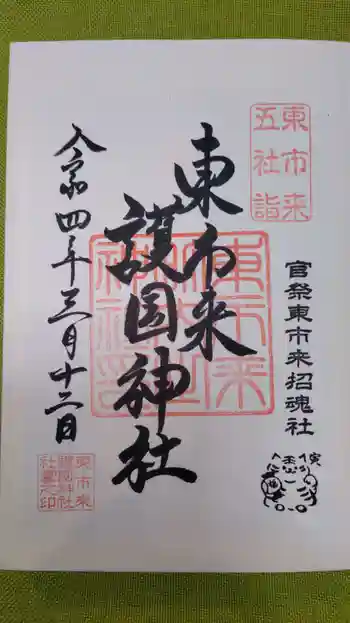 東市来
五社詣
官祭東市来招魂社
東市来
護国神社
令和四年三月十二日
東市来
護国神社
之印